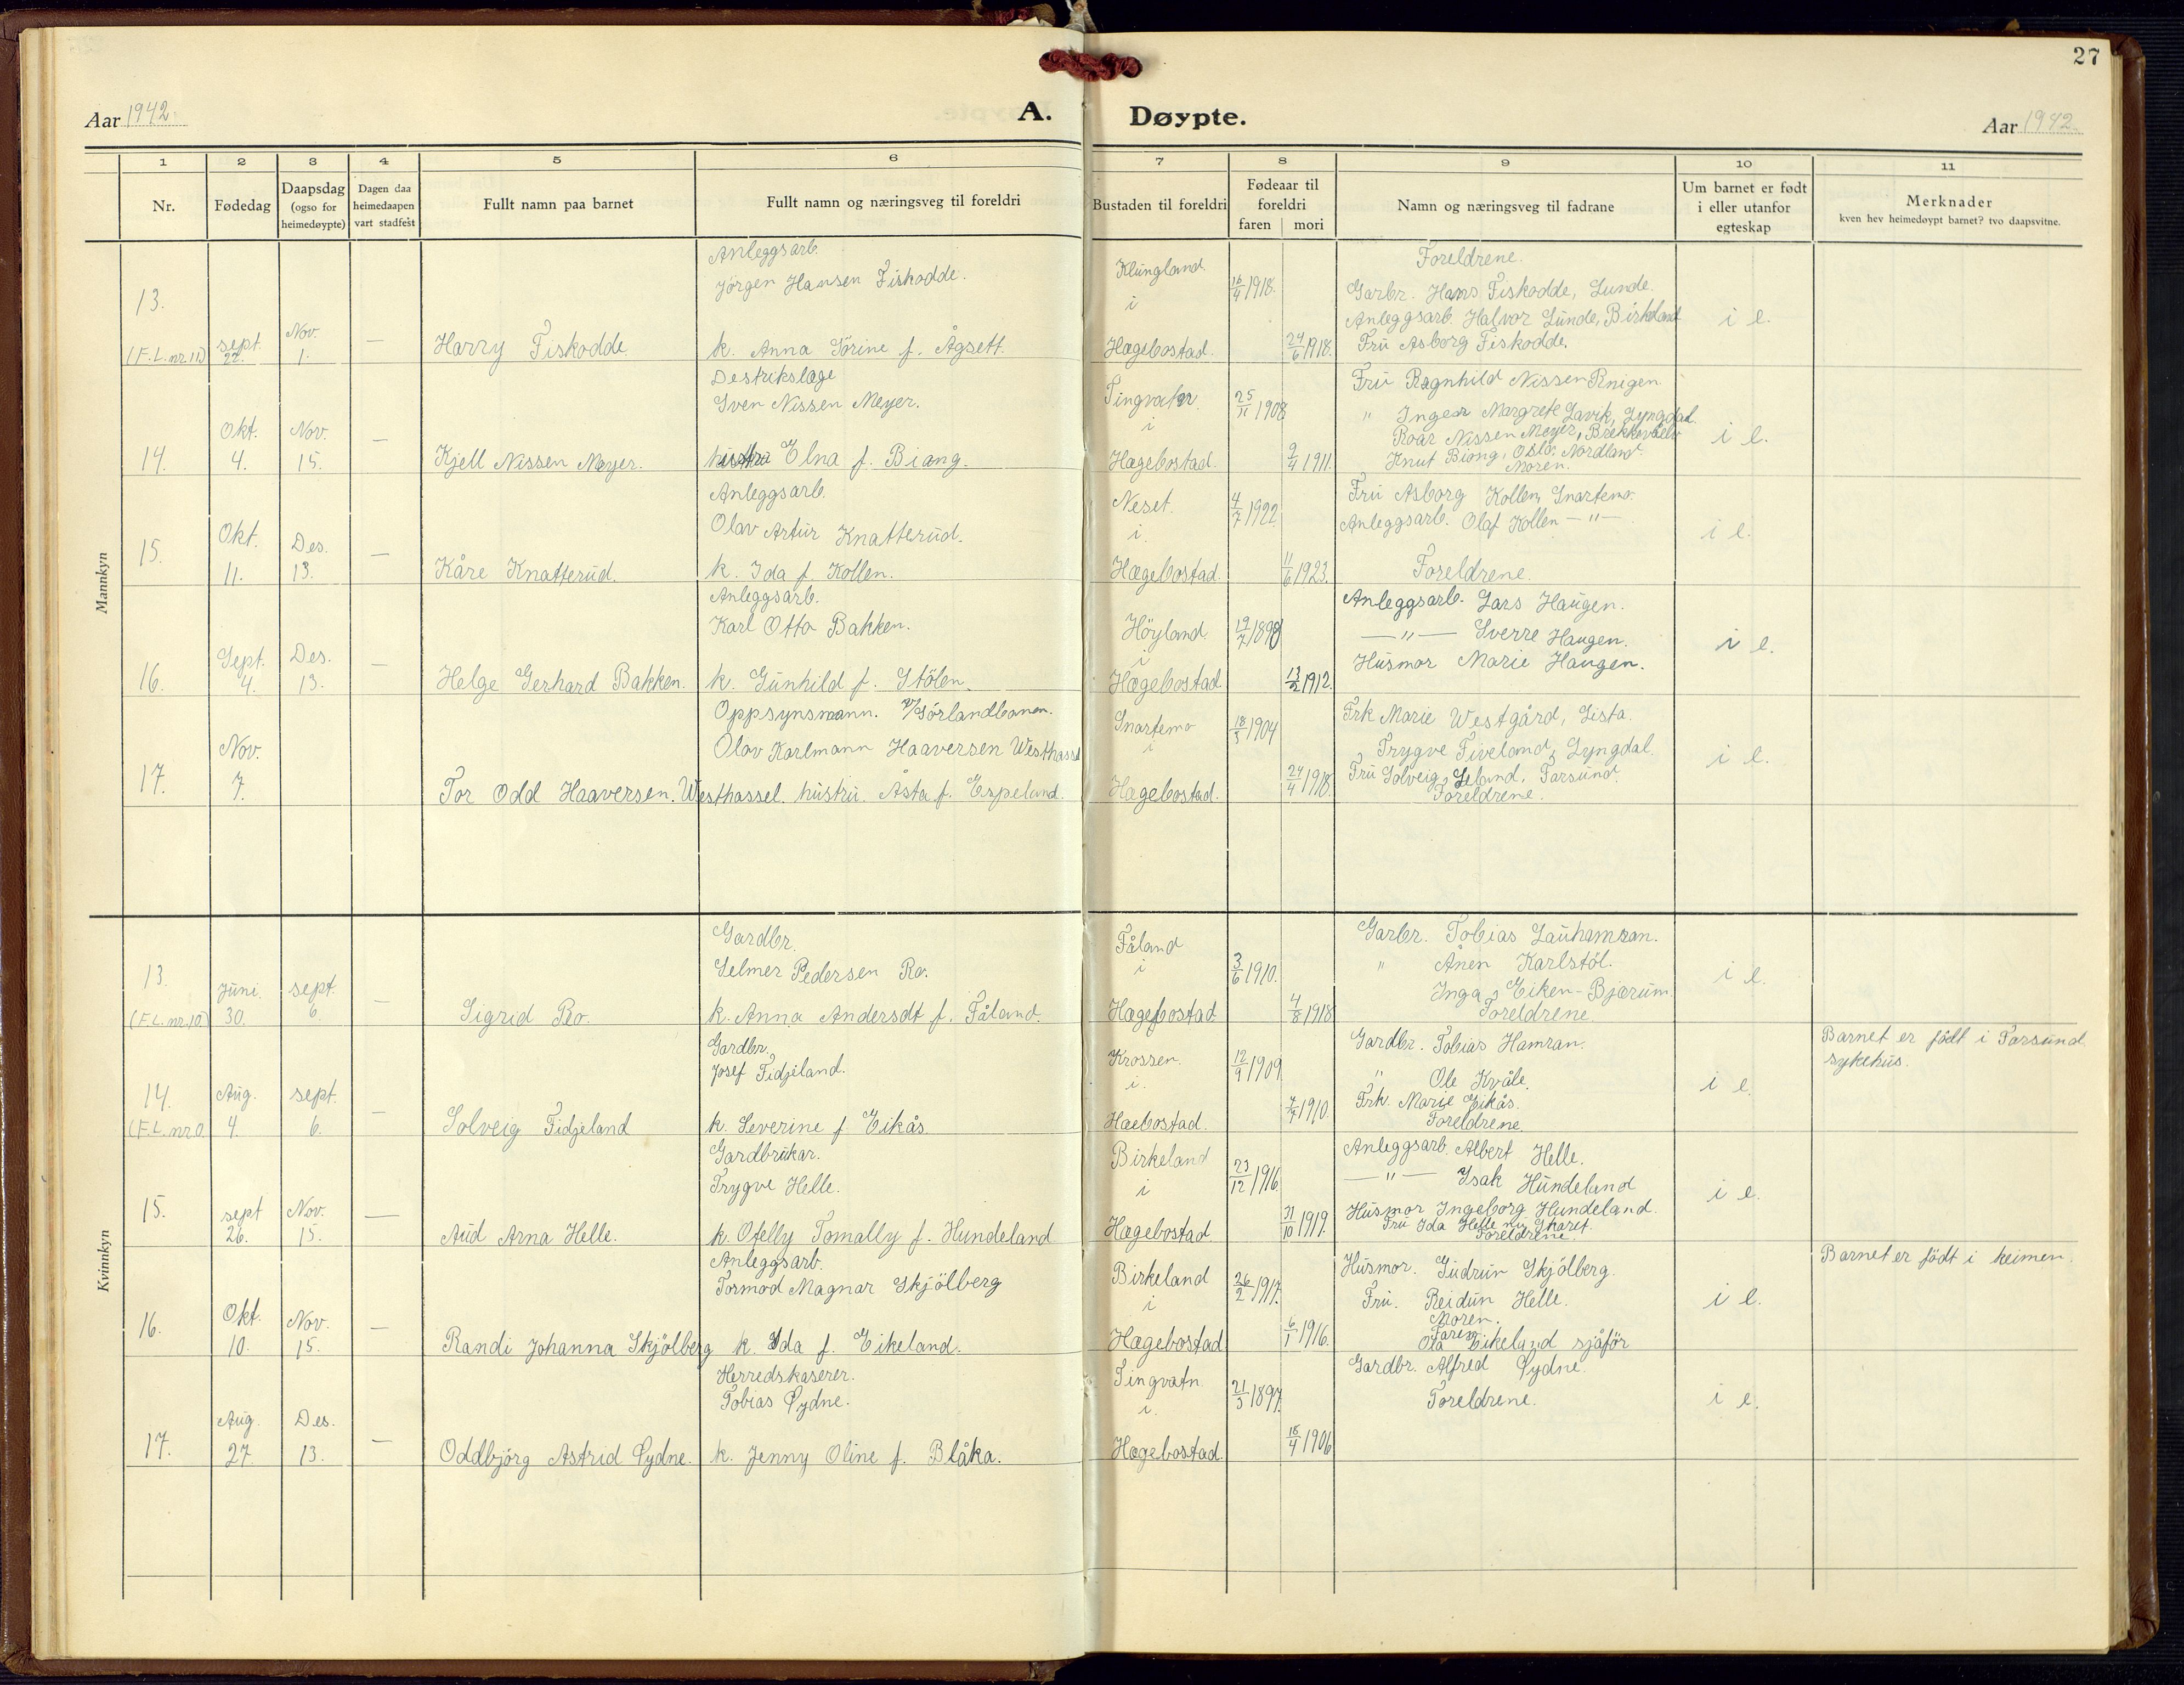 27
Aar 1942.
A. Døypte.
Aar 1942.
1 2 3 4 5 6 7 8 9 10 11
Nr.
Fødedag
Daapsdag
(ogso for
heimedøypte)
Dagen daa
heimedaapen
vart stadfest
Fullt namn paa barnet
Fullt namn og næringsveg til foreldri
Bustaden til foreldri
Fødeaar til
foreldri
faren mori
Namn og næringsveg til fadrane
Um barnet er født
i eller utanfor
egteskap
Merknader
kven hev heimedøypt barnet? tvo daapsvitne.
Mannkyn
13.
(F.L. nr. 11)
sept. 22.
Nov. 1.
—
Harry Fiskodde
Anleggsarb.
Jörgen Hansen Fiskodde.
k. Anna Sörine f. Ågsett.
Klungland.
i
Hægebostad.
16/4 1918.
24/6 1918.
Foreldrene.
Garbr. Hans Fiskodde, Lunde.
Anleggsarb. Halvor Lunde, Birkeland
Fru Asborg Fiskodde.
i e.
14.
Okt. 4.
Nov. 15.
—
Kjell Nissen Meyer.
Destrikslæge
Sven Nissen Meyer.
hustru Elna f. Biong.
Tingvatn
i
Hægebostad.
25/11 1908
9/4 1911.
Fru Ragnhild Nissen
" Inger Margrete Lavik, Lyngdal.
Roar Nissen Meyer,
Knut Biong, Oslo. Nordland
Moren.
i e.
15.
Okt. 11.
Des. 13.
—
Kåre Knatterud.
Anleggsarb.
Olav Artur Knatterud.
k. Ida f. Kollen.
Neset.
i.
Hægebostad.
4/7 1922
11/6 1923.
Fru Asborg Kollen, Snartemo
Anleggsarb. Olaf Kollen — " —
Foreldrene.
i e.
16.
Sept. 4.
Des. 13.
—
Helge Gerhard Bakken.
Anleggsarb.
Karl Otto Bakken.
k. Gunhild f. Stölen.
Höyland.
i
Hægebostad
19/7 1898
13/2 1912.
Anleggsarb. Lars Haugen.
— " — Sverre Haugen.
Husmor Marie Haugen.
i e.
17.
Nov. 7.
Tor Odd Haaversen Westhassel.
Oppsynsmann. v/Sörlandbanen.
Olav Karlmann Haaversen Westhassel
hustru. Åsta f. Espeland.
Snartemo
i
Hægebostad.
18/3 1904
24/4 1918.
Frk Marie Westgård, Lista.
Trygve Fiveland, Lyngdal.
Fru Solveig Leland, Farsund.
Foreldrene.
i e.
Kvinnkyn
13.
(F.L. nr. 10)
Juni. 30.
sept. 6.
—
Sigrid Ro.
Gardbr.
Selmer Pedersen Ro.
k. Anna Andersdt f. Fåland.
Fåland
i
Hægebostad
3/6 1910.
4/8 1918
Garbr. Tobias Lauhamran.
" Ånen Karlstöl.
Inga Eiken-Bjærum.
Foreldrene.
i e.
14.
Aug. 4.
sept. 6.
—
Solveig Fidjeland
Gardbr.
Josef Fidjeland.
k. Severine f Eikås.
Krossen.
i.
Haebostad.
12/9 1909
7/7 1910.
Gardbr. Tobias Hamran.
" Ole Kvåle.
Frk. Marie Eikås.
Foreldrene.
i e.
Barnet er födt i Farsund
sykehus.
15.
sept 26.
Nov. 15.
—
Aud Arna Helle.
Gardbrukar.
Trygve Helle.
k. Otelly Tomally f. Hundeland
Birkeland
i
Hægebostad
23/12 1916
31/10 1919.
Anleggsarb. Albert Helle.
— " — Isak Hundeland
Husmor Ingeborg Hundeland.
Fru Ida Helle
Foreldrene.
i e.
16.
Okt. 10.
Nov. 15.
—
Randi Johanna Skjölberg
Anleggsarb.
Tormod Magnar Skjölberg
k. Ida f. Eikeland.
Birkeland
i
Hægebostad
26/2 1917.
6/1 1916.
Husmor. Gudrun Skjölberg.
Fru. Reidun Helle.
Moren.
Faren
Ola Eikeland sjåför
i e.
Barnet er födt i heimen.
17.
Aug. 27.
Des. 13.
—
Oddbjörg Astrid Lydne.
Herredskaserer.
Tobias Lydne.
k. Jenny Oline f. Blåka.
Tingvatn
i.
Hægebostad.
21/3 1897
18/4 1906
Gardbr. Alfred Lydne
Foreldrene.
i e.